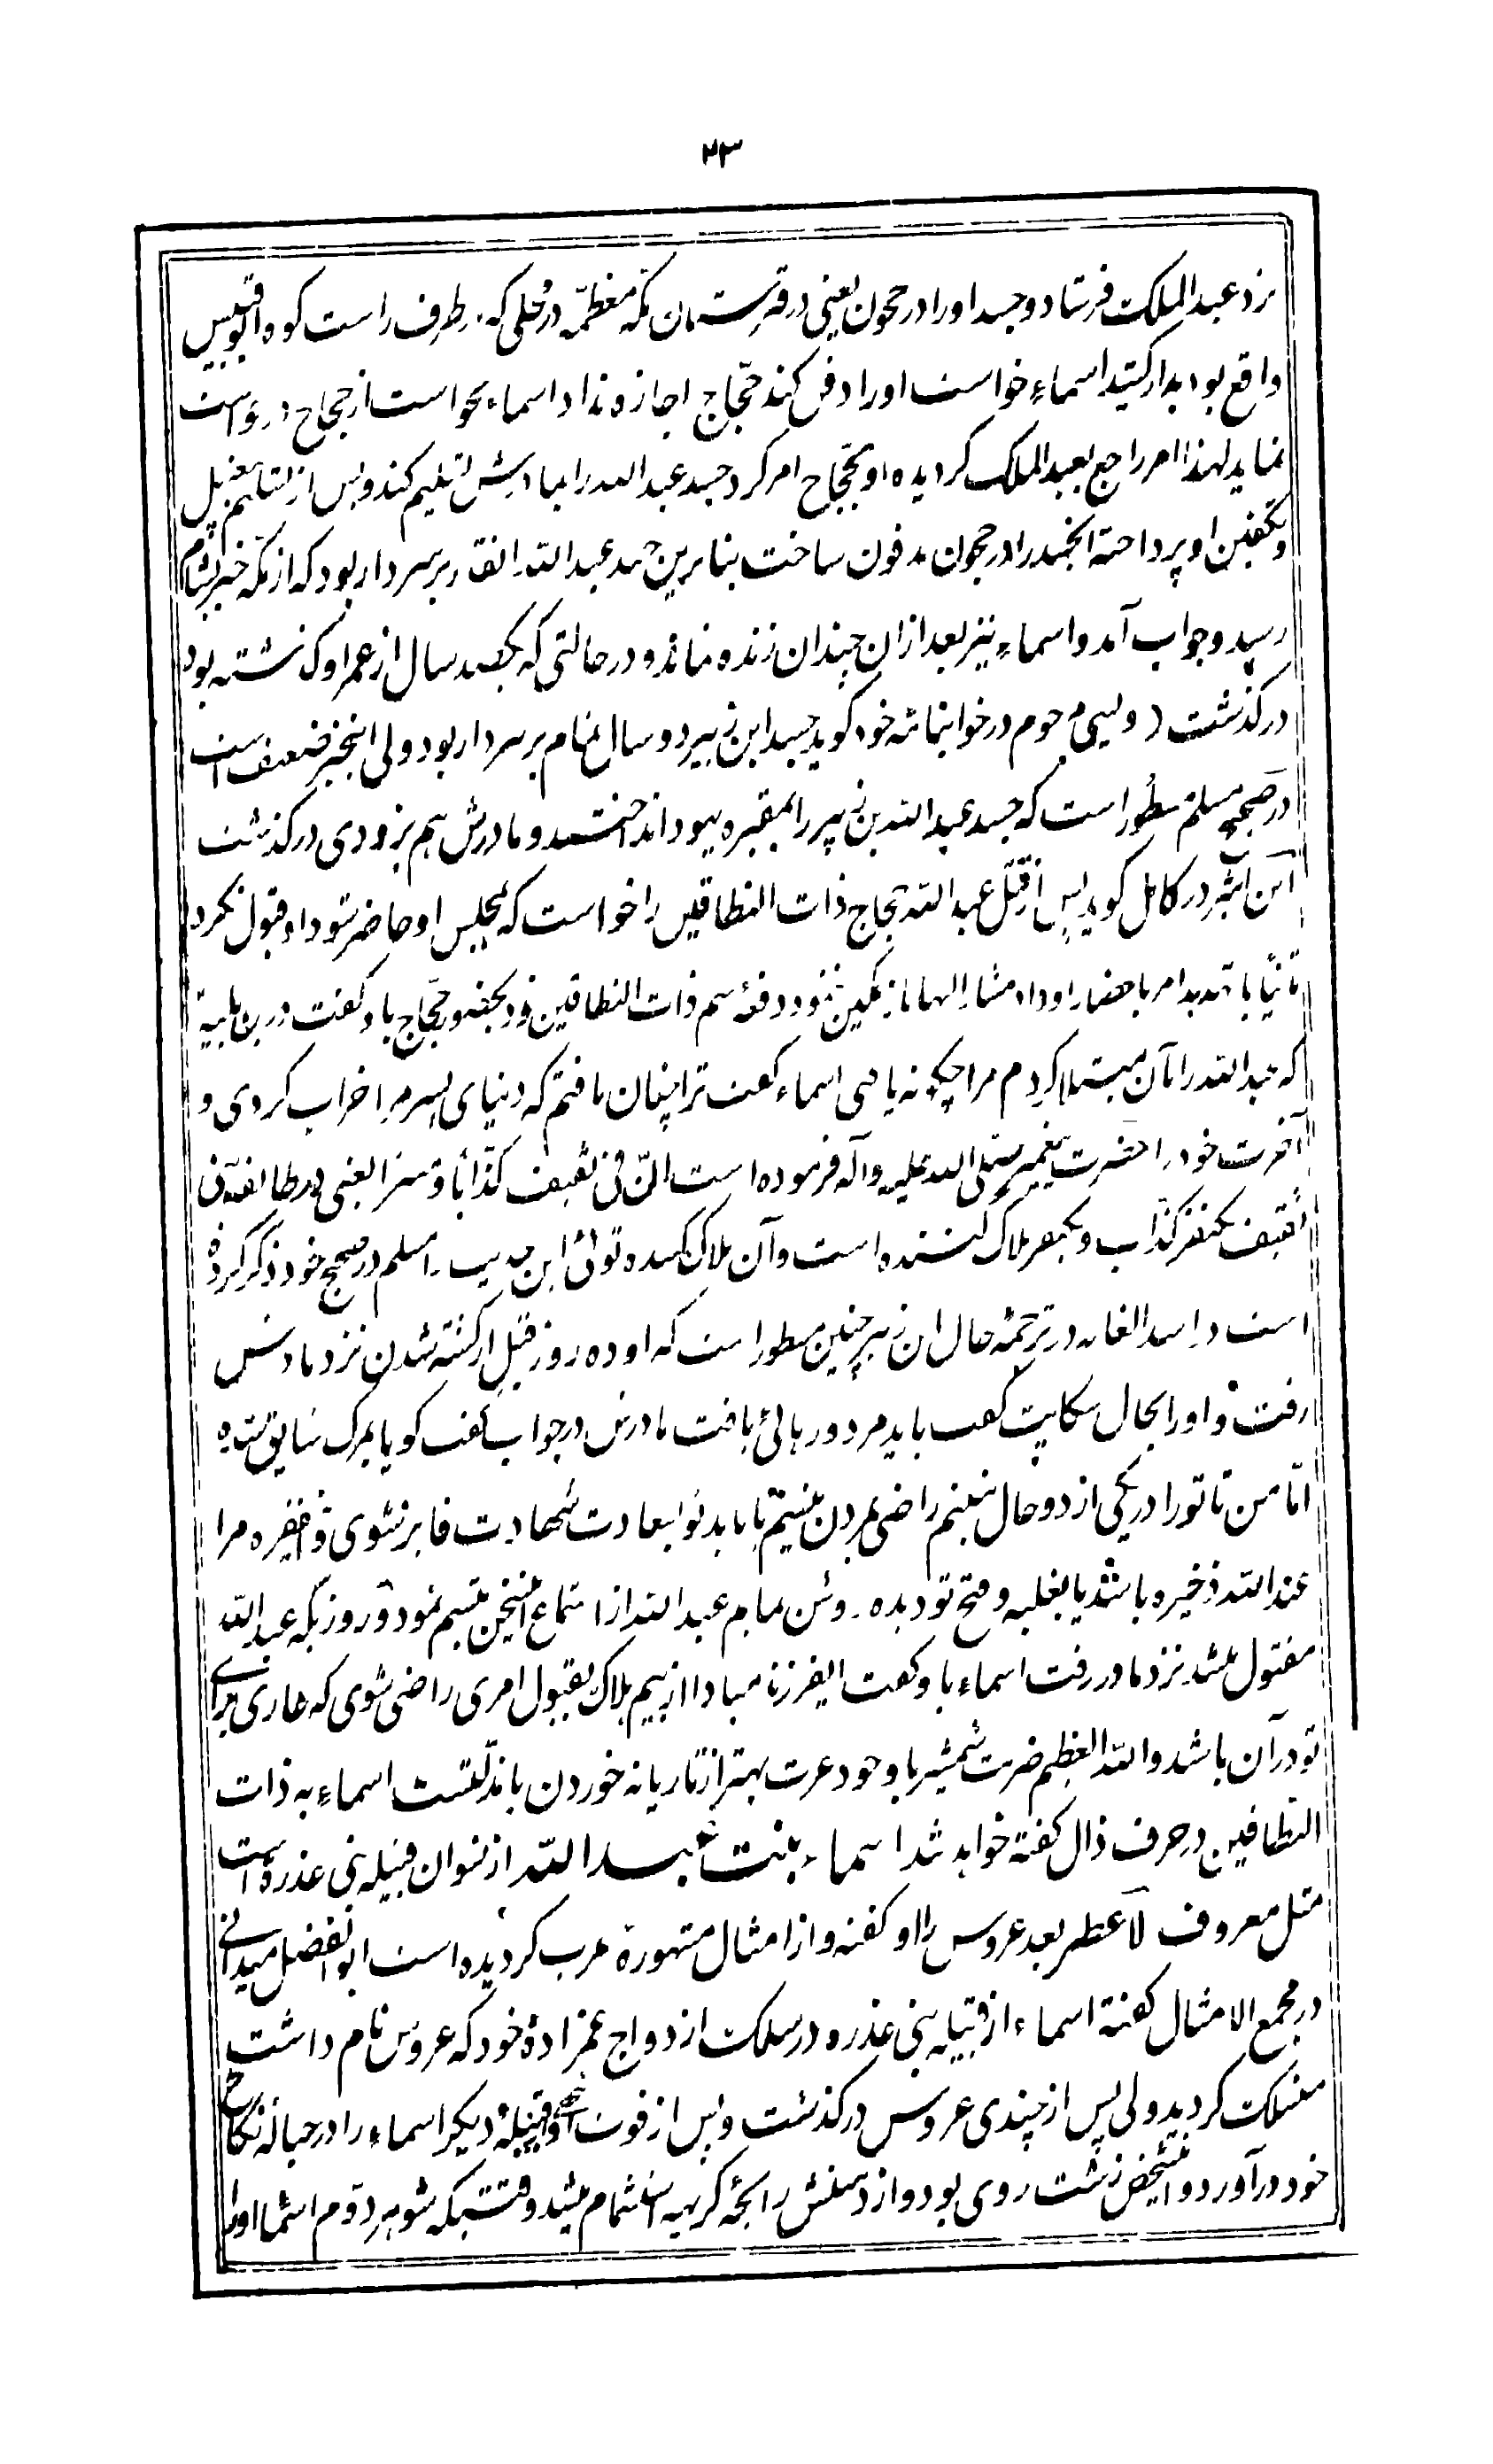 ۲۳
نزد عبدالملک فرستاد و جسد او را در حجون یعنی در قبرستان مکه معظمه در محلی که بطرف راست کوه ابوقبیس
واقع بود بدار کشید اسماء خواست او را دفن کند حجّاج اجازه نداد اسماء نخواست از حجاج درخواست
نماید لهذا امر راجع بعبدالملک کردیده او بحجّاج امر کرد جسد عبدالله را بمادرش تسلیم کند و پس از تسلیم بغسل
و تکفین او پرداخته آنجسد را در حجون مدفون ساخت بنابرین جسد عبدالله آنقدر بر سر دار بود که از مکّه خبر بشام
رسید و جواب آمد و اسماء نیز بعد از ان چندان زنده نماند و در حالتی که یکصد سال از عمر او کذشته بود
درکذشت (ویسی مرحوم در خوابنامهٔ خود کوید جسد ابن زبیر دو سال تمام بر سر دار بود ولی اینخبر ضعیف است
در صحیح مسلم مسطور است که جسد عبدالله بن زبیر را بمقبره یهود انداختند و مادرش هم بزودی درکذشت
ابن اثیر در کامل کوید پس از قتل عبدالله حجاج ذات النطاقین را خواست که بمجلس او حاضر شود او قبول نکرد
ثانیاً با تهدید امر باحضار او داد مشارالیها باز تمکین ننمود دفعهٔ سم ذات النطاقین خود بحضور حجّاج باو کفت درین بلیه
که عبدالله را بآن مبتلا کردم مرا چکونه یافتی اسماء کفت ترا چنان یافتم که دنیای پسر مرا خراب کردی و
آخرت خود را حضرت پیغمبر صلی الله علیه و آله فرموده است انّ فی ثقیف کذّاباً و مبیراً یعنی در طایفهٔ بنی
ثقیف یکنفر کذّاب و یکنفر هلاک کننده است و آن هلاک کننده توئی این حدیث را مسلم در صحیح خود ذکر کرده
است در اسد الغابه در ترجمهٔ حال ابن زبیر چنین مسطور است که او ده روز قبل از کشته شدن نزد مادرش
رفت و او را بحال شکایت کفت باید مرد و رهائی یافت مادرش در جواب کفت کویا بمرک شایق شده
امّا من تا تو را در یکی از دو حال نبینم راضی بمردن نیستم یا باید تو بسعادت شهادت فایز شوی و اینفقره مرا
عندالله ذخیره باشد یا بغلبه و فتح تو دیده روشن نمایم عبدالله از استماع اینسخن تبسم نمود و روزیکه عبدالله
مقتول میشد نزد مادر رفت اسماء باو کفت ایفرزند مبادا از بیم هلاک بقبول امری راضی شوی که عاری برای
تو در آن باشد والله العظیم ضربت شمشیر با وجود عزت بهتر از تازیانه خوردن با مذلتست اسماء به ذات
النطاقین در حرف ذال کفته خواهد شد اسماء بنت عبدالله از نسوان قبیله بنی عذره است
مثل معروف لا عطر بعد عروس را او کفته و از امثال مشهورهٔ عرب کردیده است ابوالفضل میدانی
در مجمع الامثال کفته اسماء از قبیله بنی عذره در سلک ازدواج عمزادهٔ خود که عروس نام داشت
منسلک کردید ولی پس از چندی عروس درکذشت و پس از فوت او قبیلهٔ دیکر اسماء را در حبالهٔ نکاح
خود درآورد و اینشخص زشت روی بود و از دهنش رایحهٔ کریهه استشمام میشد وقتیکه شوهر دوم اسما او را